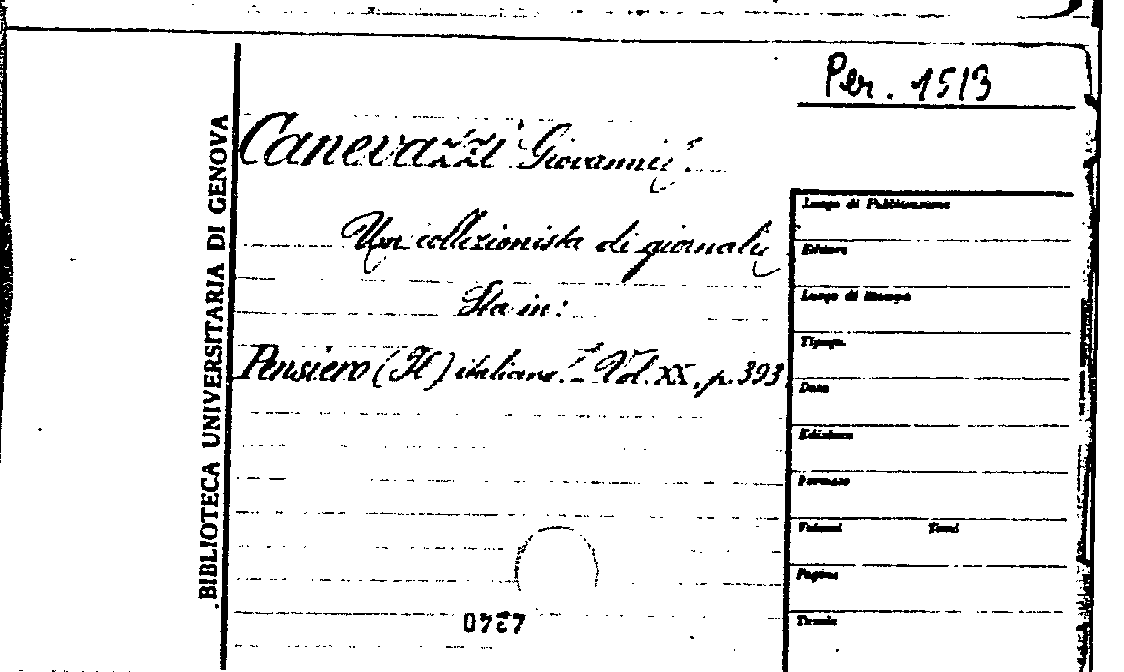 Per. 1513
BIBLIOTECA UNIVERSITARIA DI GENOVA
Canevazzi Giovanni.
Un collezionista di giornali
Sta in:
Pensiero (Il) italiano. - Vol. XX, p. 393.
Luogo di Pubblicazione
Editore
Luogo di Stampa
Tipogr.
Data
Edizione
Formato
Volumi Tomi
Pagine